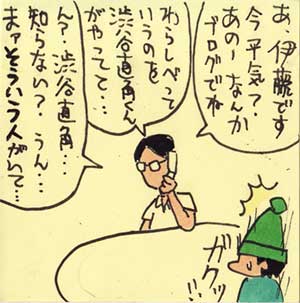 あ、伊藤です
今平気?
あのーなんか
ブログでね
わらしべって
いうのを
渋谷直角くん
がやってて…
ん?渋谷直角…
知らない?うん…
まァそういう人がいて…
ガクッ!!